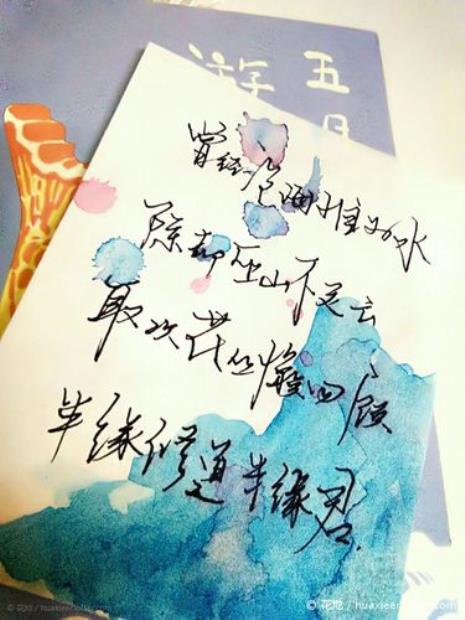 五月
游
曾经沧海难为水
除却巫山不是云
取次花丛懒回顾
半缘修道半缘君